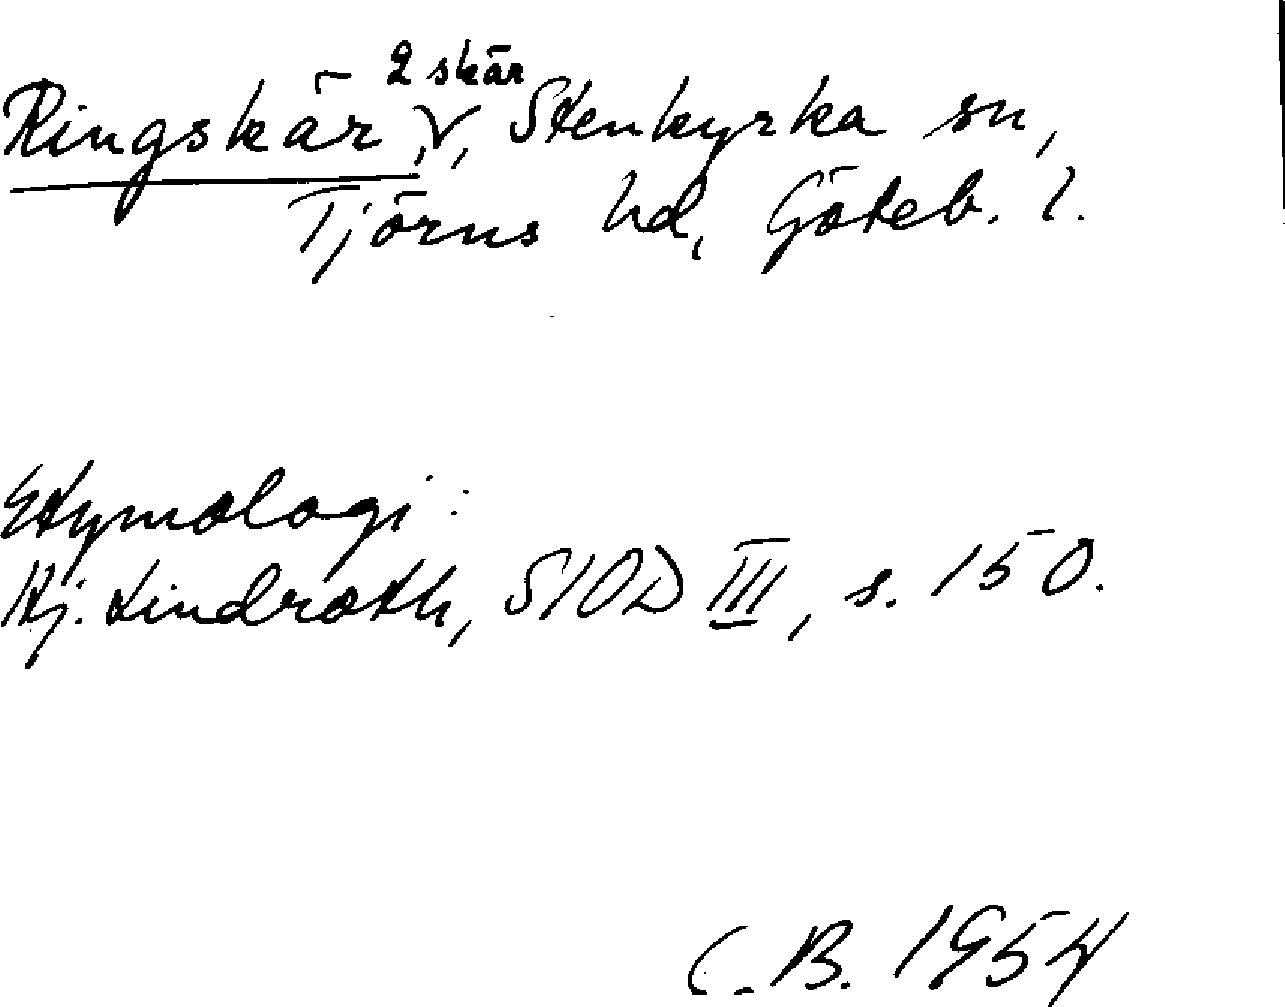 Ringskär, 2 skär, Stenkyrka sn,
Tjörns hd, Göteb. l.
Etymologi:
Hj. Lindroth, SIOD III, s. 150.
C. B. 1954